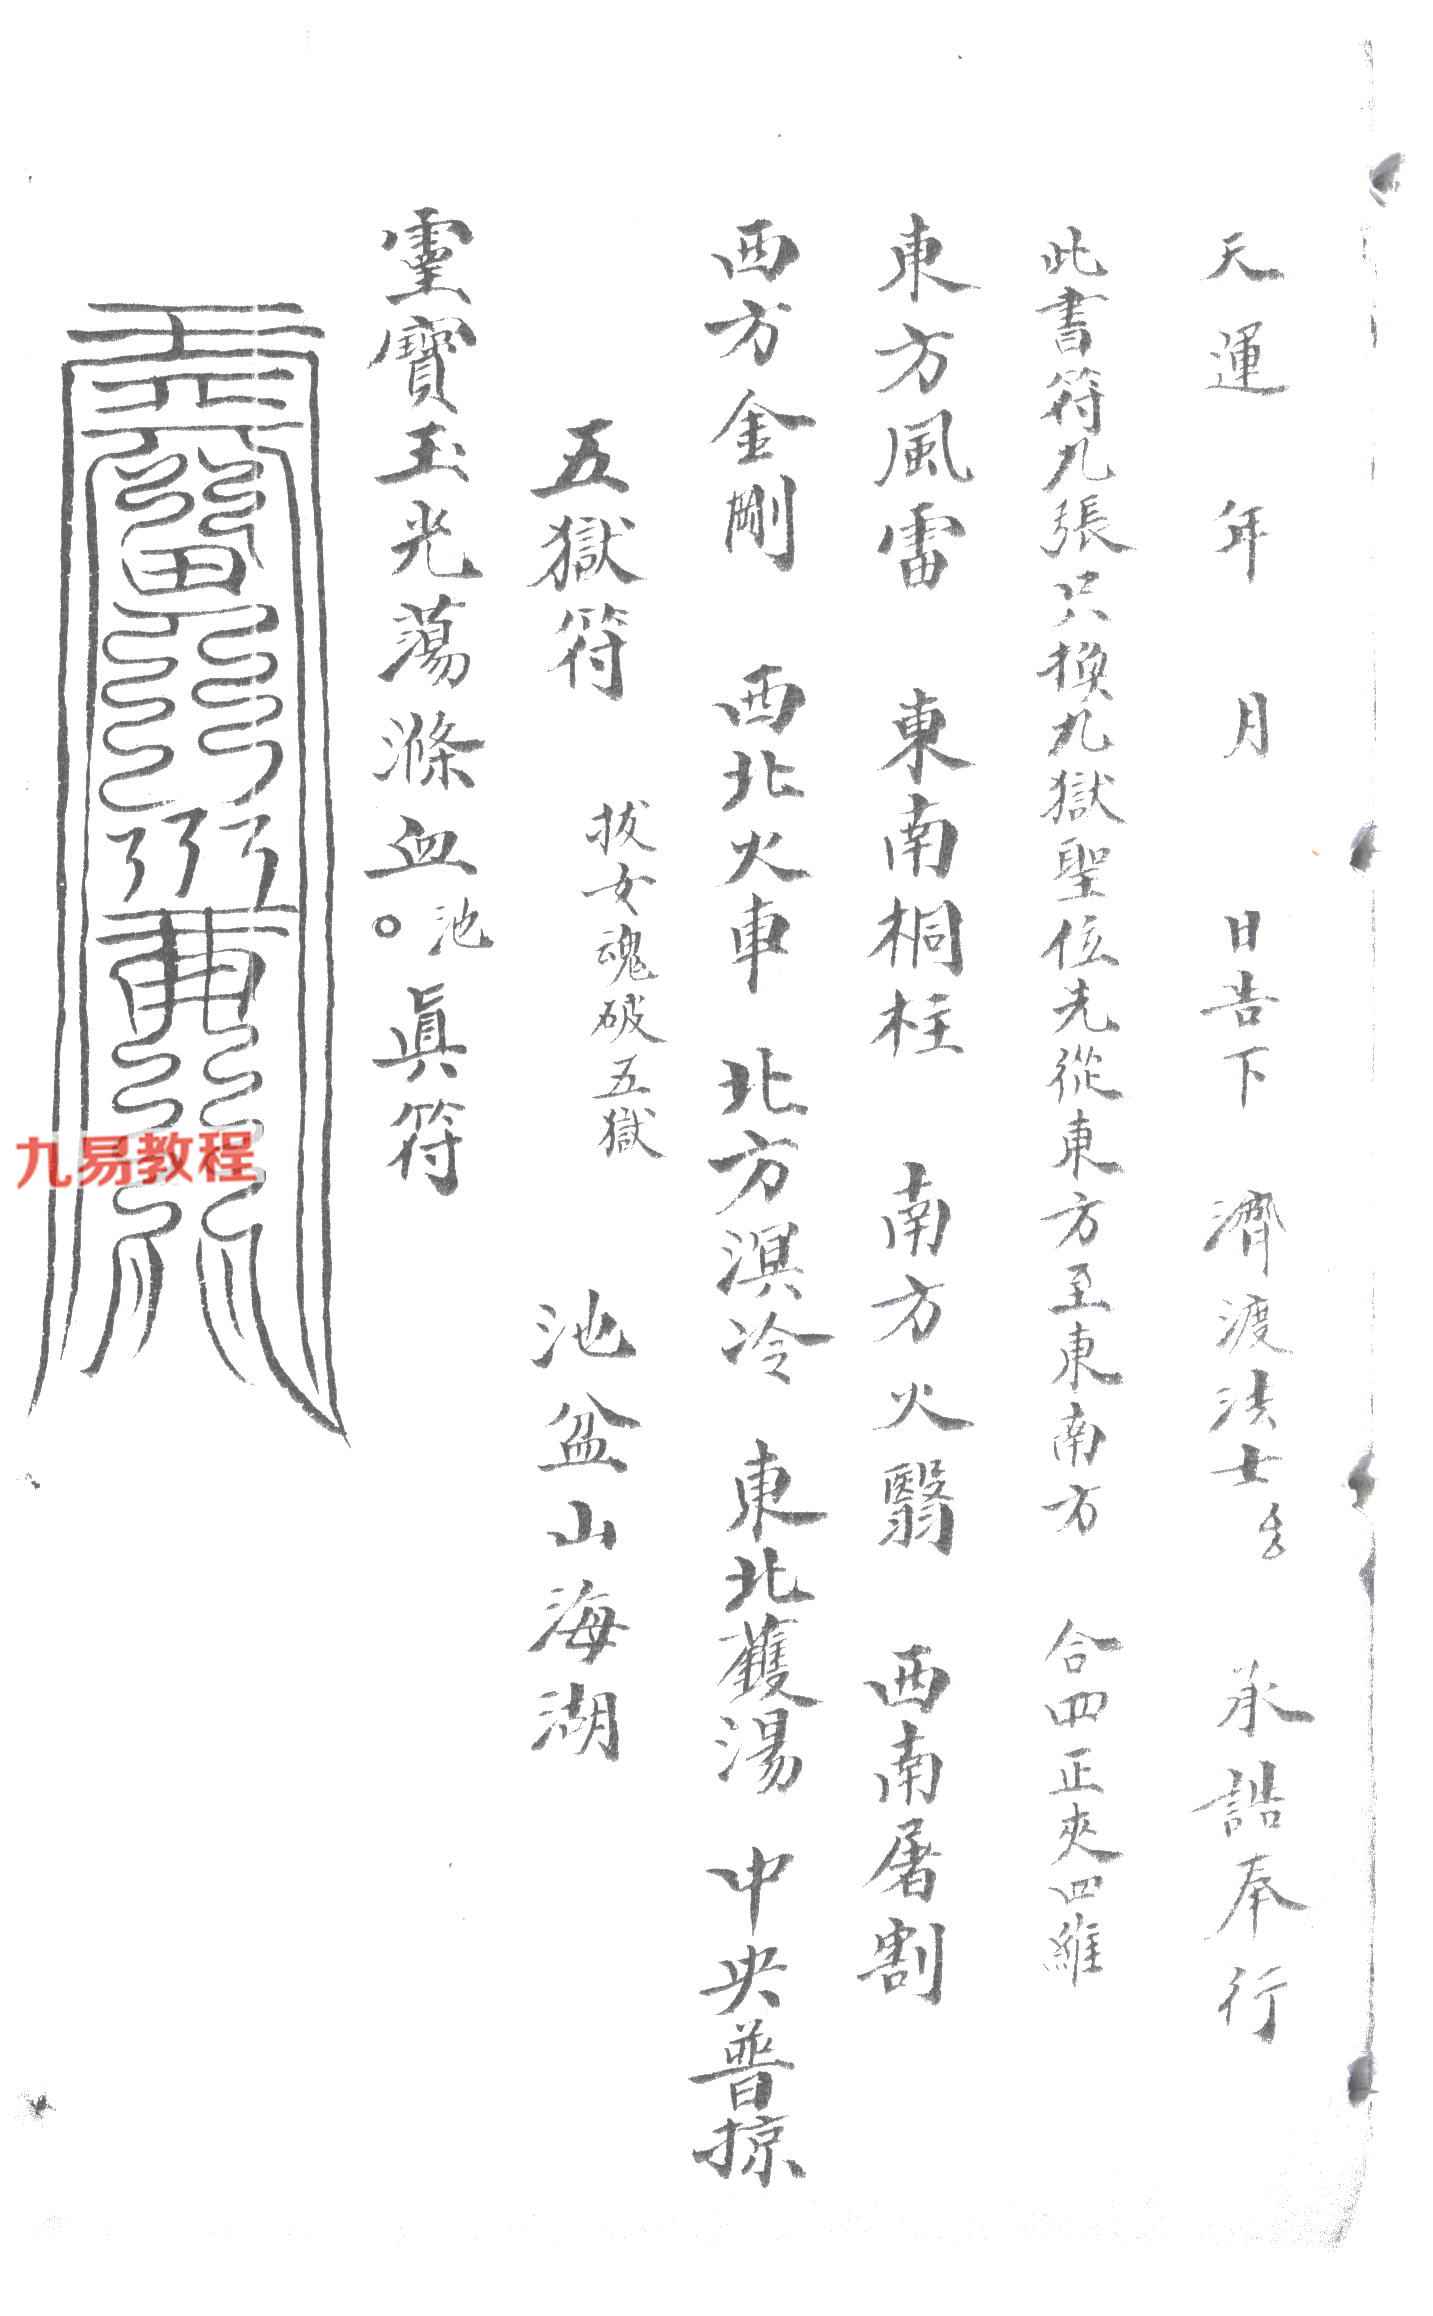 天運　年　月　日告下　濟渡法士　承誥奉行
此書符九張只換九獄聖位先從東方至東南方　合四正夾四維
東方風雷　東南桐柱　南方火翳　西南屠割
西方金剛　西北火車　北方溟冷　東北鑊湯　中央普掠
五獄符　拔女魂破五獄　池盆山海湖
靈寶玉光蕩滌血池真符
九易教程